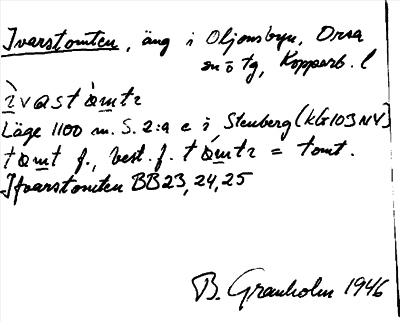 Ivarstomten, äng i Oljonsbyn, Orsa
sn o tg, Kopparb. l
ìvastàmtɩ
Läge 1100 m. S. 2:a e i Stenberg (KG103NV)
tamt f., best. f. tàmtɩ = tomt.
Ifvarstomten BB23,24,25
B. Granholm 1946